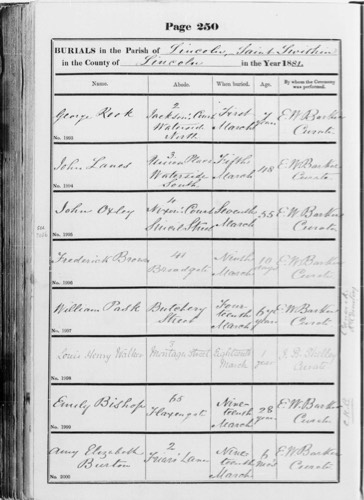 Page 250
BURIALS in the Parish of Lincoln, Saint Swithin
in the County of Lincoln in the Year 1881.
Name. Abode. When buried. Age. By whom the Ceremony was performed.
George Rook 2 Jackson's Court Waterside North First March 7 E.W. Barker Curate
No. 1993
John Lanes 3 Waterside South Fifth March 48 E.W. Barker Curate
No. 1994
John Oxley 4 Court Street Seventh March 55 E.W. Barker Curate
No. 1995
Frederick Brown 41 Broadgate Ninth March 10 days E.W. Barker Curate
No. 1996
William Pask Butchery Street Fourteenth March years E.W. Barker Curate
No. 1997
Louis Henry Walker 3 Montague Street Eighteenth March 1 year Curate
No. 1998
Emily Bishop 65 Flaxengate Nineteenth March 28 years E.W. Barker Curate
No. 1999
Amy Elizabeth Burton 2 Friars Lane Nineteenth March 6 mos E.W. Barker Curate
No. 2000